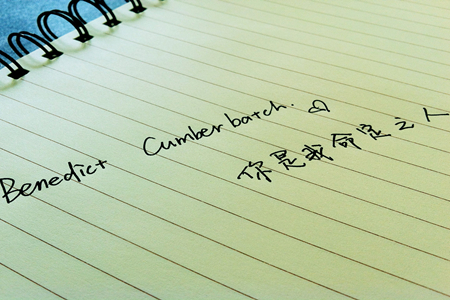 Benedict Cumberbatch. ♡
你是我命定之人